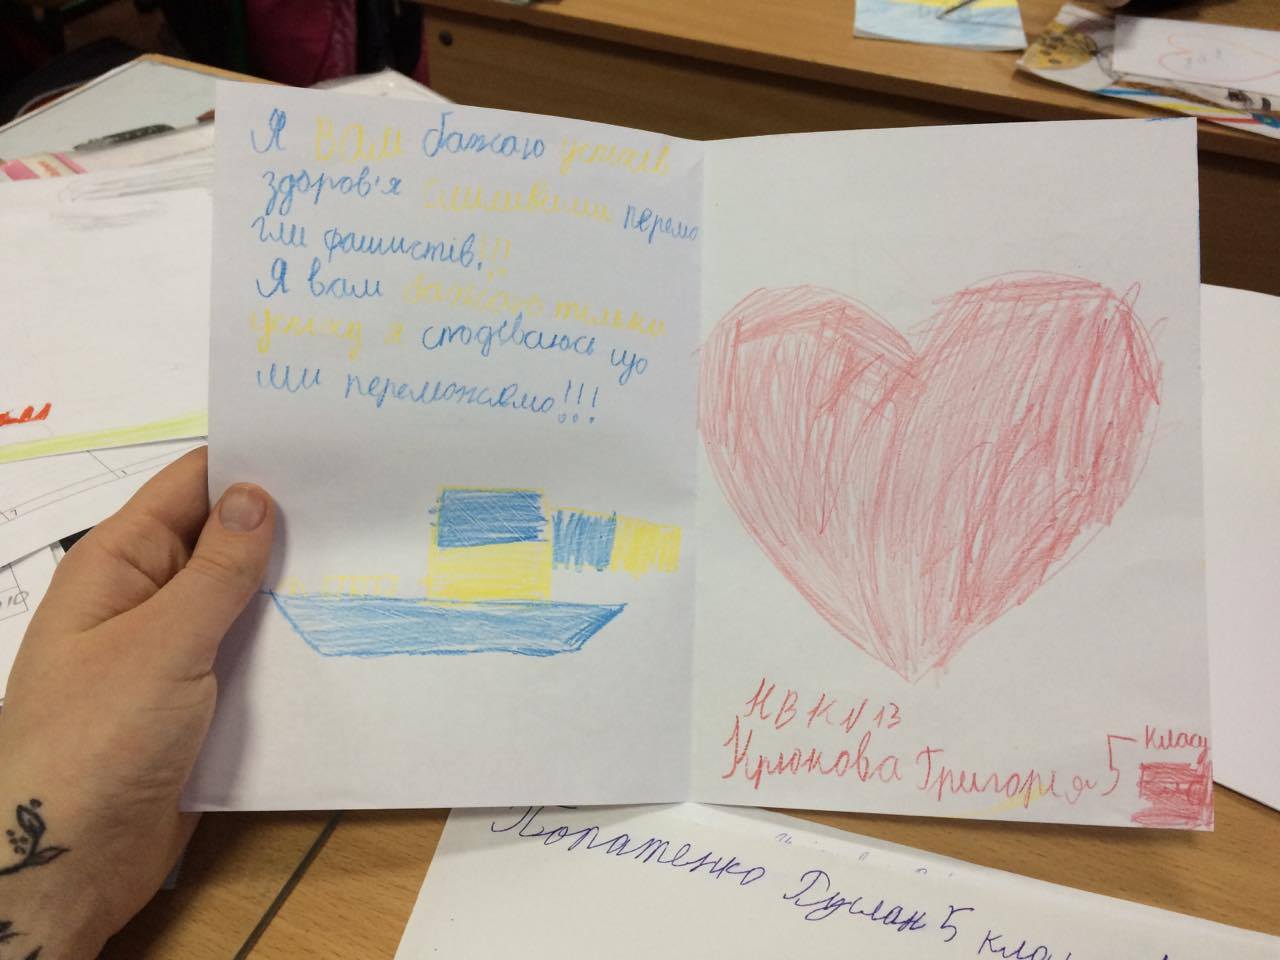 Я Вам бажаю успіхів
здоров'я сміливими перемо
гли фашистів!!!
Я вам бажаю тільки
успіху я сподіваюсь що
ми переможемо!!!
НВК №13
Крюкова Григорія 5 класу
Лопатенко Руслан 5 кла